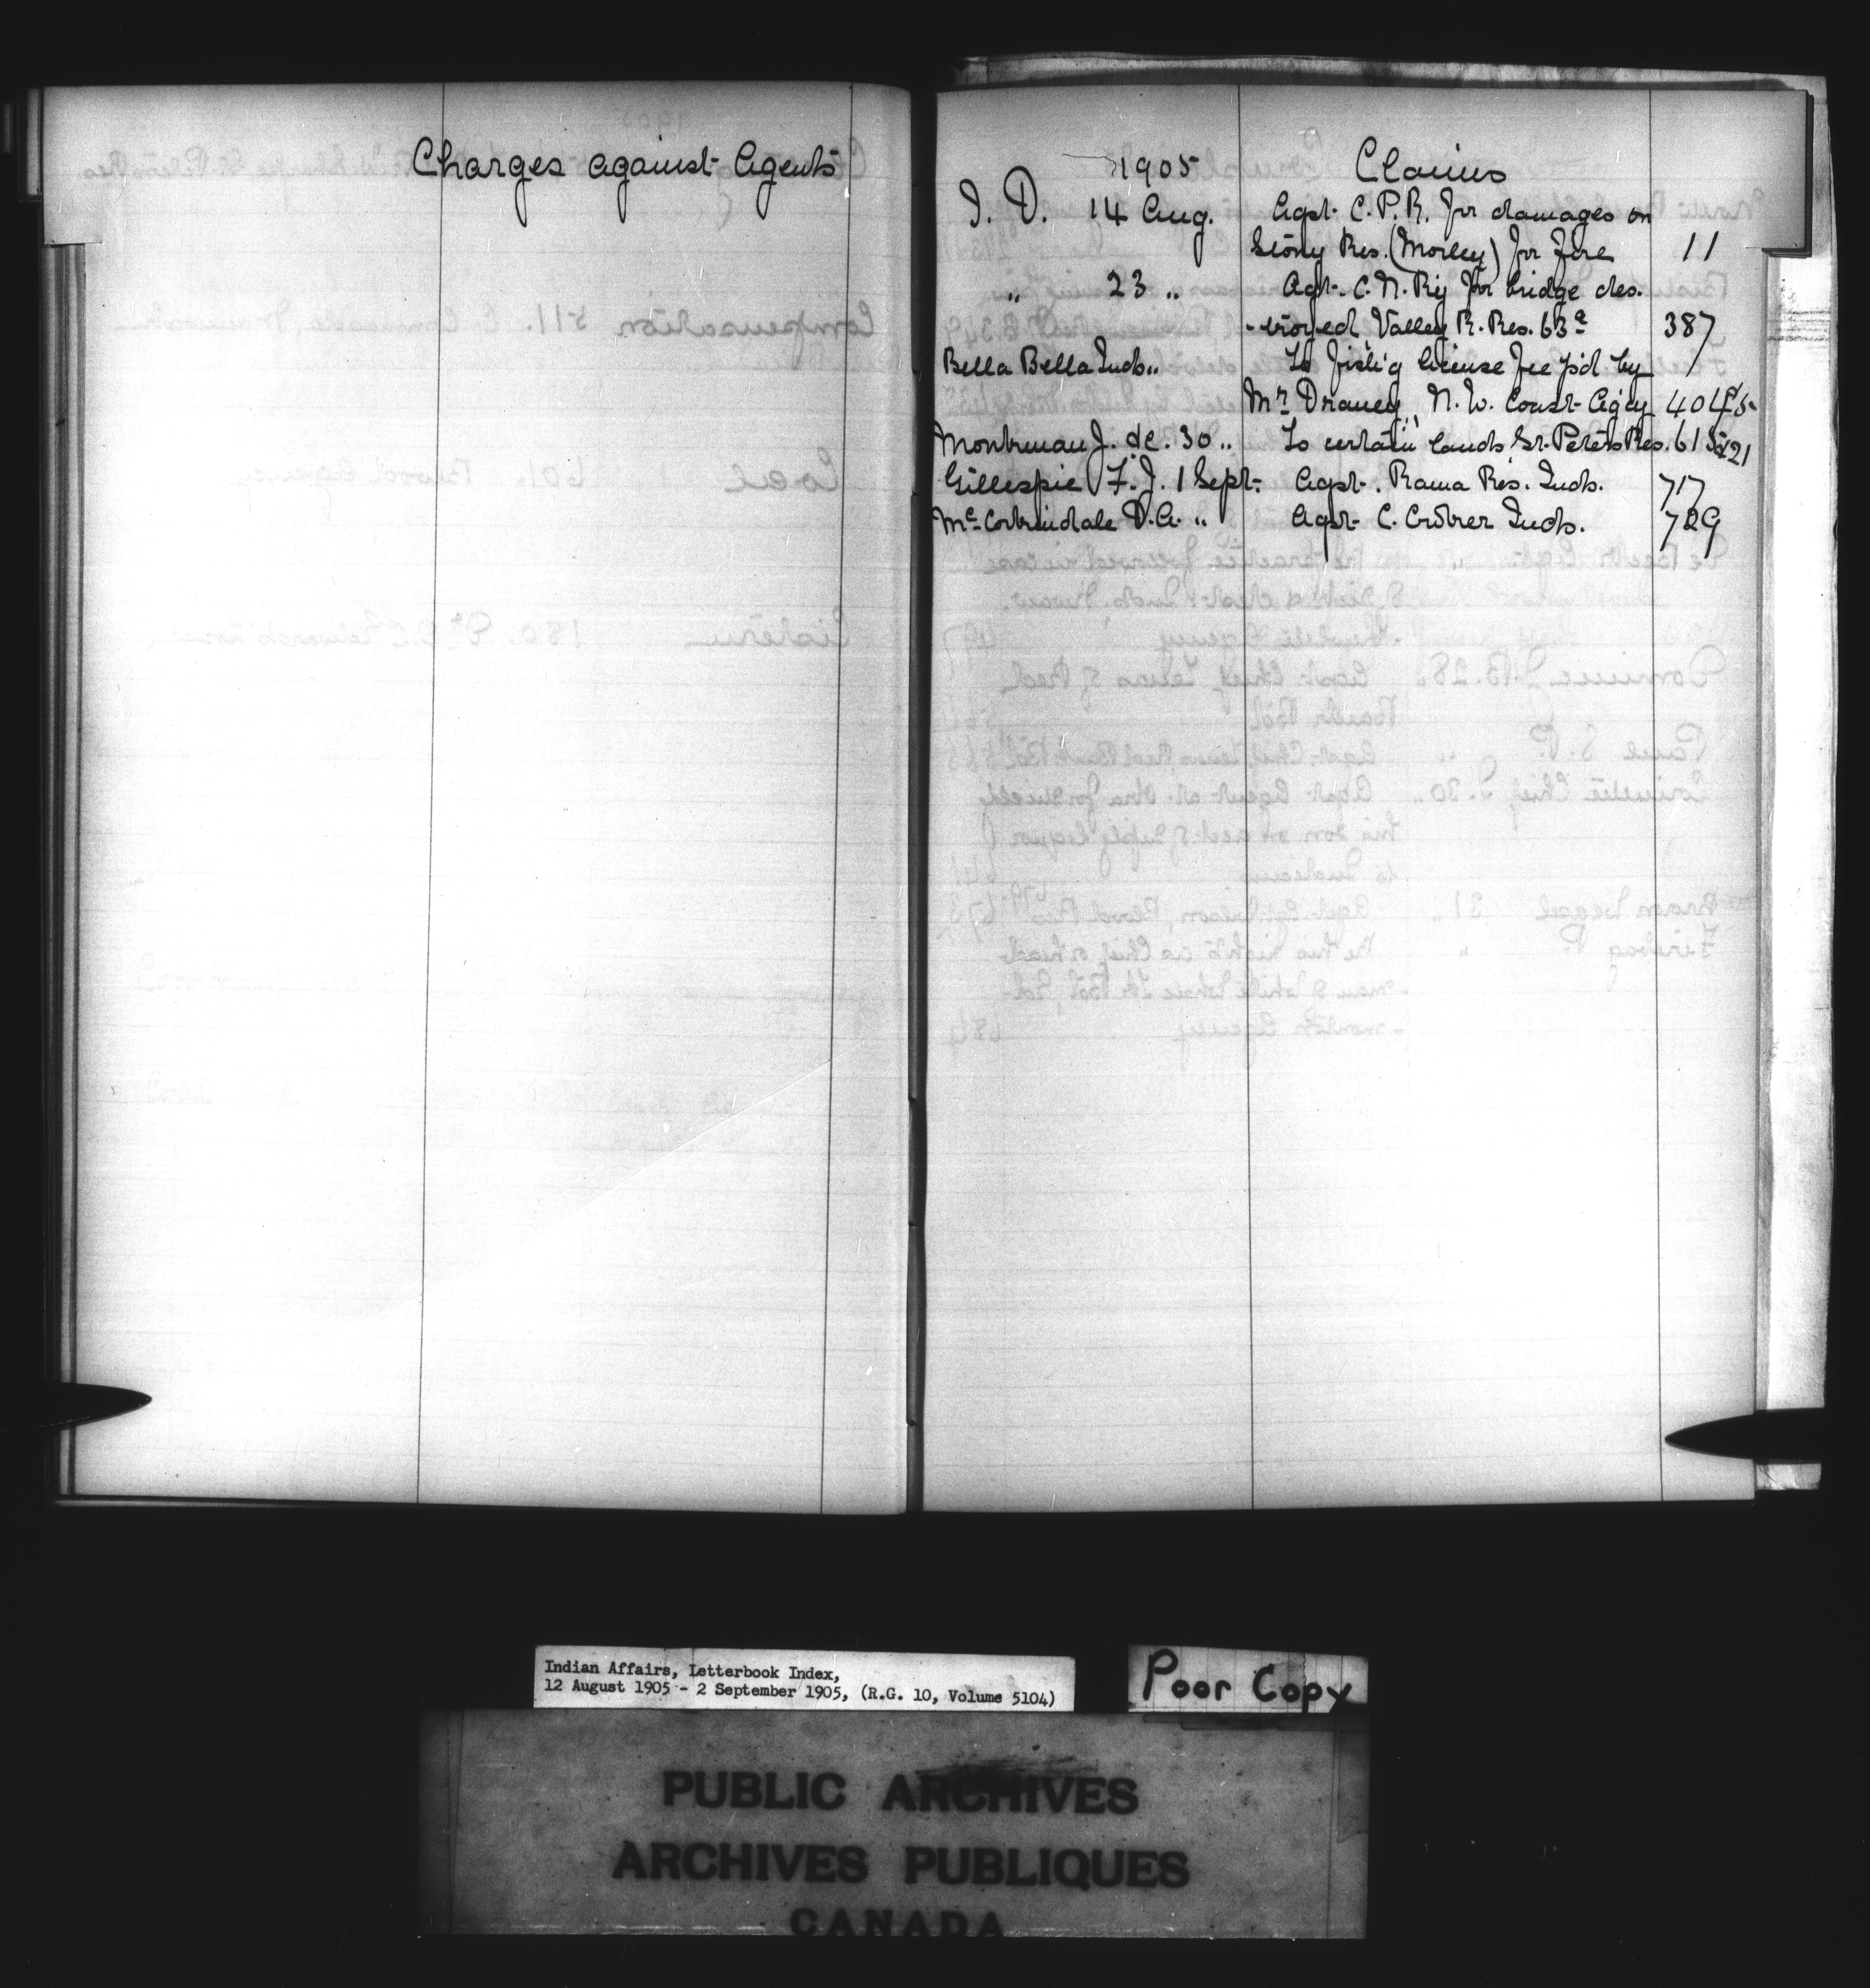 Charges against Agents
1905 Claims
J. D. 14 Aug. Agst. C. P. R. for damages on
Stony Res. (Morley) for fire 11
" 23 " Agst. C. N. Ry for bridge des-
-troyed, Valley R. Res. 63a 387
Bella Bella Inds " To fish'g license fee p'd by
Mr. Draney, N. W. Coast Ag'cy 404
Montrman J. &c. 30 " To certain lands St. Peters Res. 615
Gillespie F. J. 1 Sept. Agst. Rama Res. Inds. 717
McCorkindale D. A. " Agst. C. Croker Inds. 729
Indian Affairs, Letterbook Index,
12 August 1905 - 2 September 1905, (R.G. 10, Volume 5104)
Poor Copy
PUBLIC ARCHIVES
ARCHIVES PUBLIQUES
CANADA